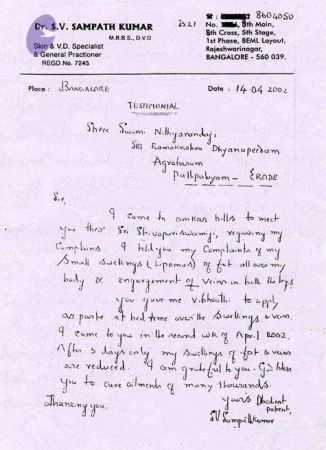 Dr. S.V. SAMPATH KUMAR
M.B.B.S., D.V.D
Skin & V.D. Specialist
& General Practioner
REGD.No. 7245
1521
8604050
5th Main,
8th Cross, 5th Stage,
1st Phase, BEML Layout,
Rajeshwarinagar,
BANGALORE - 560 039.
Place : BANGALORE
Date : 14-04 2002
TESTIMONIAL
Shree Swami Nithyananda,
SRI Ramakrishna Dhyanapeedam
Agraharam
Pallipalayam - ERODE
Sir,
I came to omkar hills to meet
you thro' Sri Shivapuriswamiji, regarding my
Complains. I told you my Complaints of my
Small Swellings (Lipomas) of fat all over my
body & engorgement of veins in both the legs
you gave me Vibhoothi to apply
as paste at bed time over the Swellings & veins.
I came to you in the second wk of April 2002.
After 5 days only my Swellings of fat & veins
are reduced. I am grateful to you. God bless
you to cure ailments of many thousands.
Thanking you.
your's Obedient
patient,
SV Sampathkumar